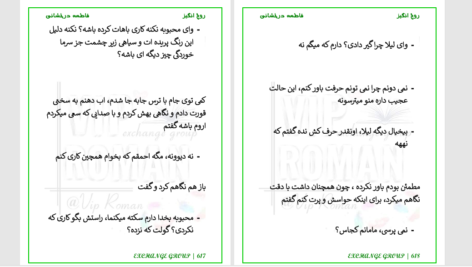 روح انگیز
فاطمه درخشانی
- وای محبوبه نکنه کاری باهات کرده باشه؟ نکنه دلیل
این رنگ پریده ات و سیاهی زیر چشمت جز سرما
خوردگی چیز دیگه ای باشه؟
کمی توی جام با ترس جابه جا شدم، اب دهنم به سختی
قورت دادم و نگاهی بهش کردم و با صدایی که سعی میکردم
اروم باشه گفتم
- نه دیوونه، مگه احمقم که بخوام همچین کاری کنم
باز هم نگاهم کرد و گفت
- محبوبه بخدا دارم سکته میکنما، راستش بگو کاری که
نکردی؟ گولت که نزده؟
EXCHANGE GROUP | 617
روح انگیز
فاطمه درخشانی
- وای لیلا چرا گیر دادی؟ دارم که میگم نه
- نمی دونم چرا نمی تونم حرفت باور کنم، این حالت
عجیب داره منو میترسونه
- بیخیال دیگه لیلا، اونقدر حرف کش نده گفتم که
نههه
مطمئن بودم باور نکرده ، چون همچنان داشت با دقت
نگاهم میکرد، برای اینکه حواسش و پرت کنم گفتم
- نمی پرسی، مامانم کجاس؟
EXCHANGE GROUP | 618
VIP
ROMAN
exchange group
@Vip Roman
VIP
ROMAN